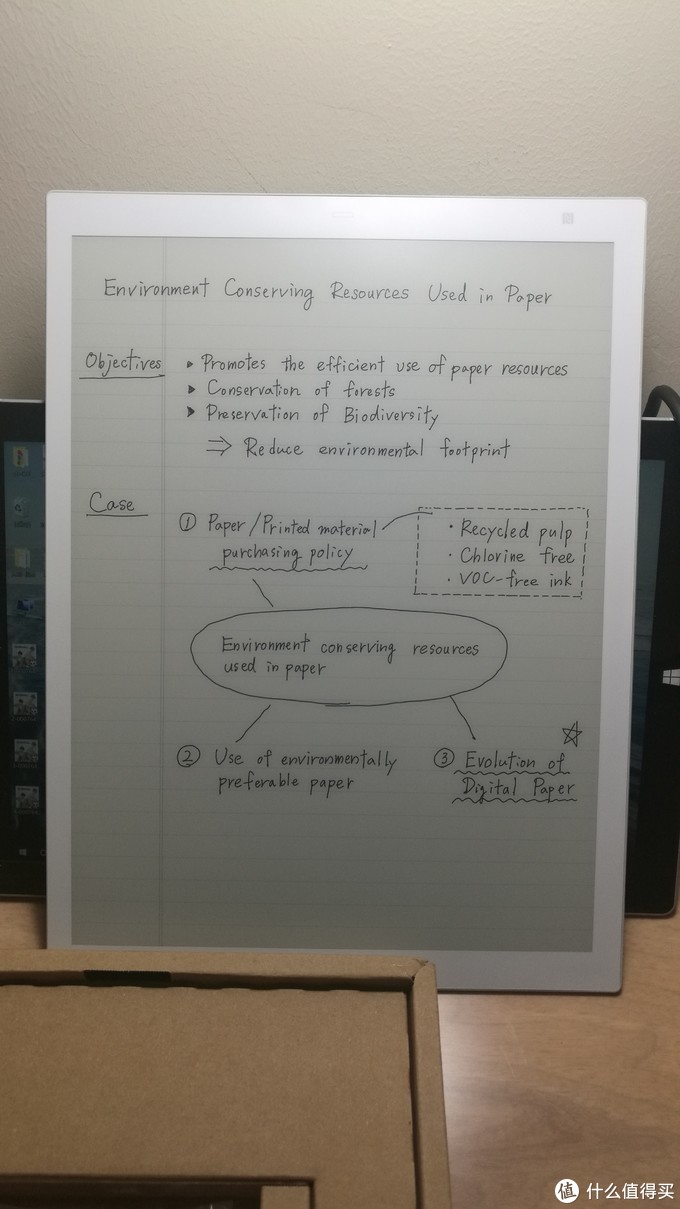 Environment Conserving Resources Used in Paper
Objectives
▸ Promotes the efficient use of paper resources
▸ Conservation of forests
▸ Preservation of Biodiversity
⇒ Reduce environmental footprint
Case
① Paper/Printed material
purchasing policy
・Recycled pulp
・Chlorine free
・VOC-free ink
Environment conserving resources
used in paper
② Use of environmentally
preferable paper
③ Evolution of
Digital Paper
值 什么值得买